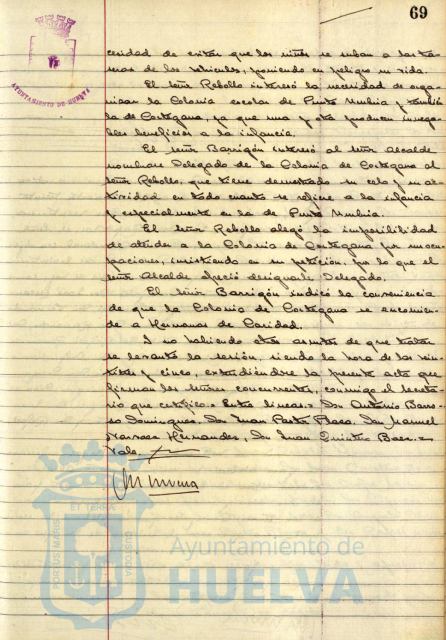 69
AYUNTAMIENTO DE HUELVA
cesidad de evitar que los niños se suban a las tra-
seras de los vehículos, poniendo en peligro su vida.
El señor Rebollo interesó la necesidad de orga-
nizar la Colonia escolar de Punta Umbría y también
la de Cortegana, ya que una y otra producen innega-
bles beneficios a la infancia.
El señor Barrigón interesó al señor Alcalde
nombrase Delegado de la Colonia de Cortegana al
señor Rebollo, que tiene demostrado su celo y su ac-
tividad en todo cuanto se refiere a la infancia
y especialmente en la de Punta Umbría.
El señor Rebollo alegó la imposibilidad
de atender a la Colonia de Cortegana por sus ocu-
paciones, insistiendo en su petición, por lo que el
señor Alcalde ofreció designarle Delegado.
El señor Barrigón indicó la conveniencia
de que la Colonia de Cortegana se encomien-
de a Hermanas de Caridad.
Y no habiendo otros asuntos de que tratar
se levantó la sesión, siendo la hora de las vein-
titrés y cinco, extendiéndose la presente acta que
firman los señores concurrentes, conmigo el Secreta-
rio que certifico.= Entre líneas.= Don Antonio
Domínguez, Don Juan, Don Manuel
Narvaez Hernandez, Don Juan Quintero Baez.=
Vale.
PORTUS MARIS
ET TERRA
CUSTODIA
Ayuntamiento de
HUELVA